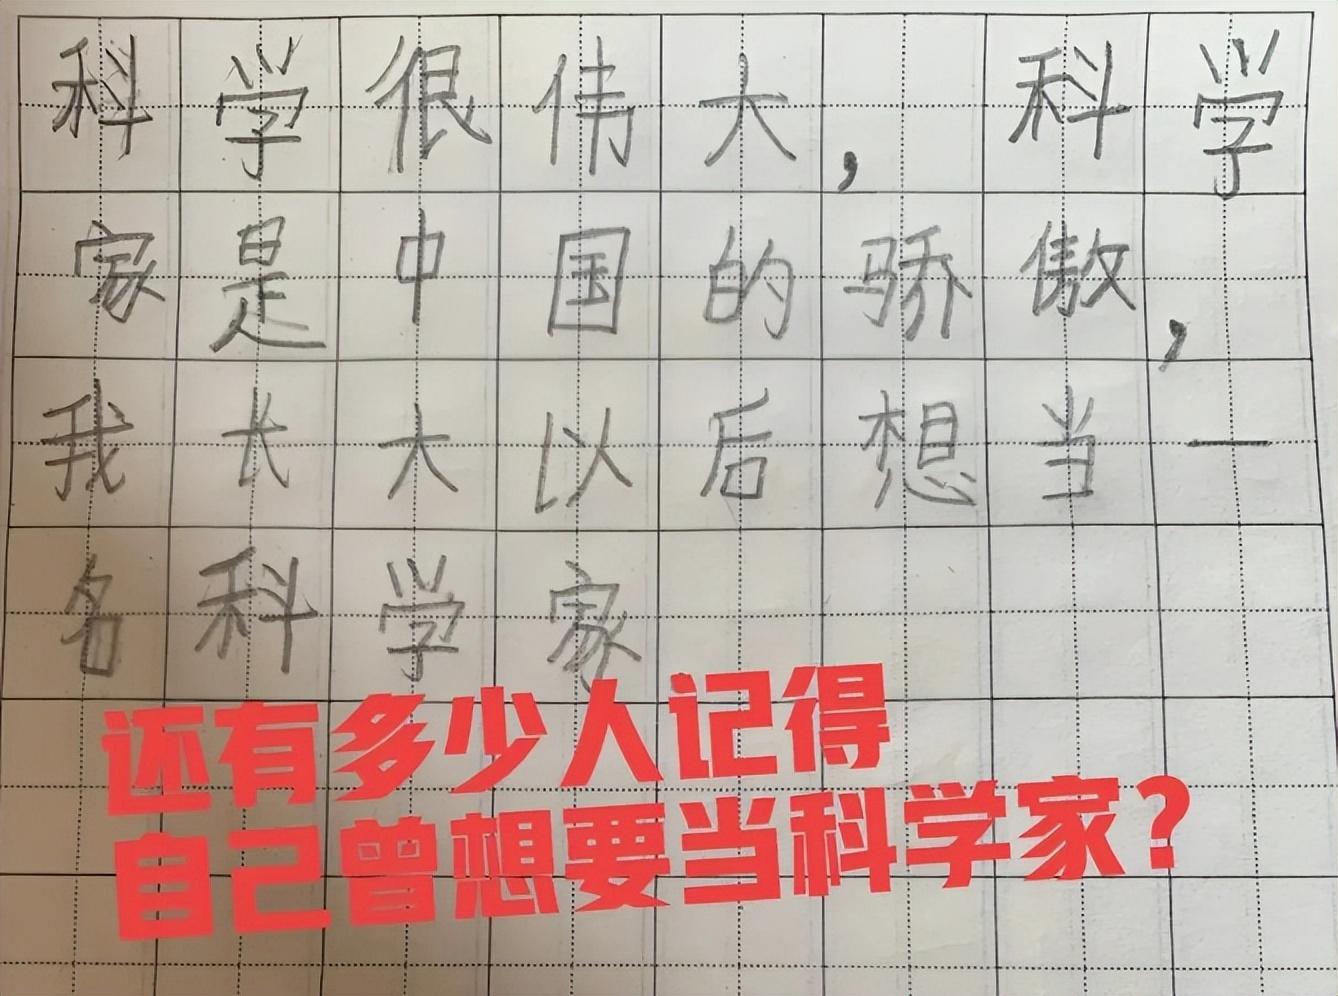 科学很伟大，科学
家是中国的骄傲，
我长大以后想当一
名科学家
还有多少人记得
自己曾想要当科学家？